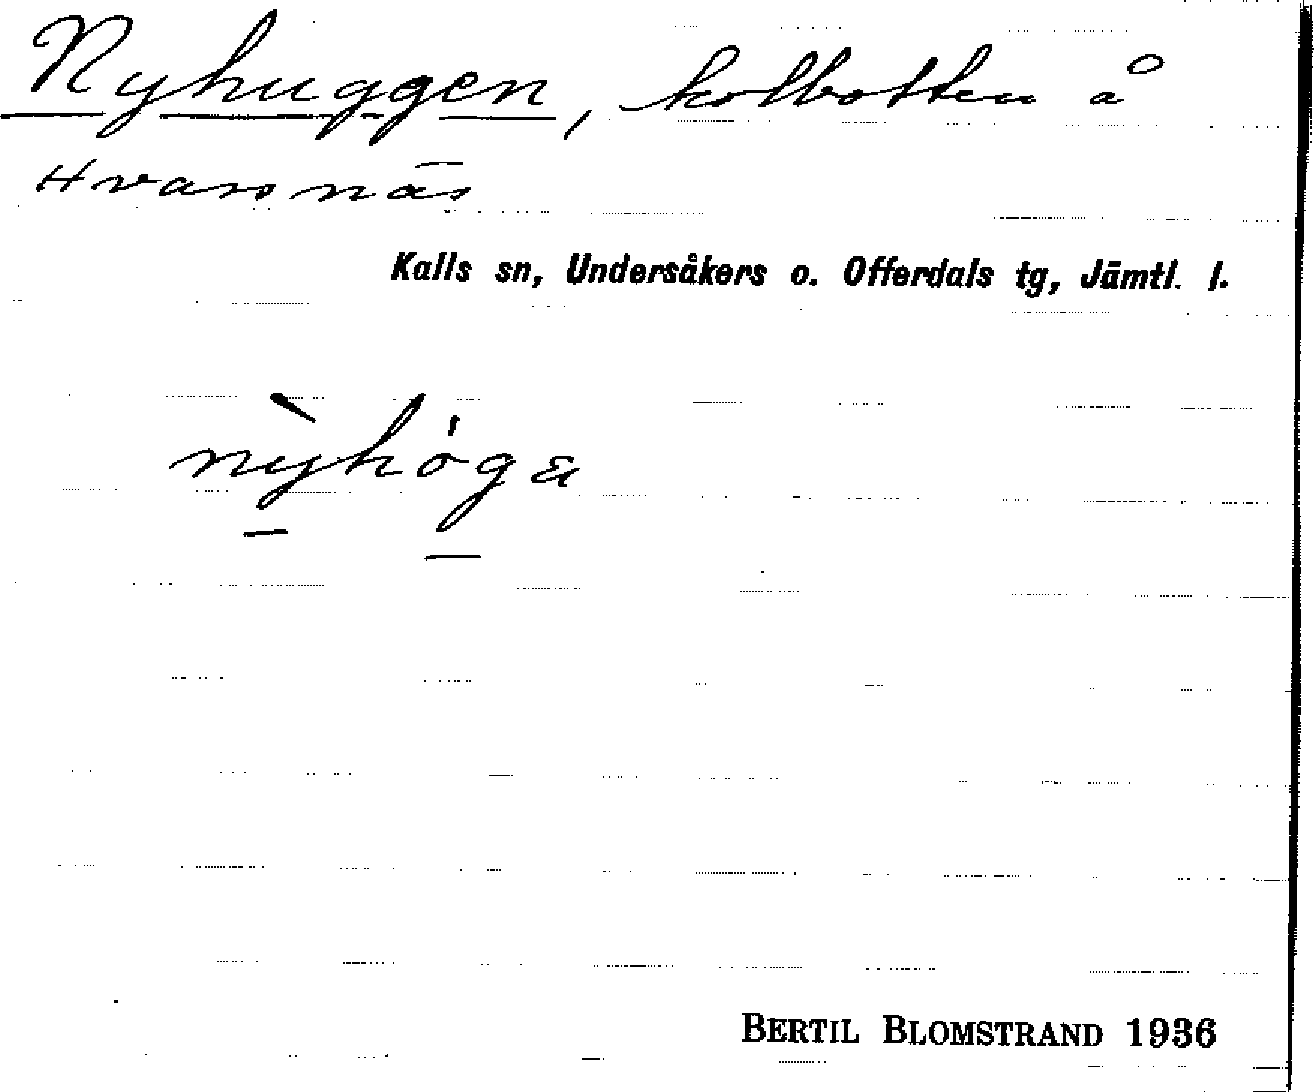 Nyhuggen, kolbotten å
Hvassnäs
Kalls sn, Undersåkers o. Offerdals tg, Jämtl. l.
BERTIL BLOMSTRAND 1936